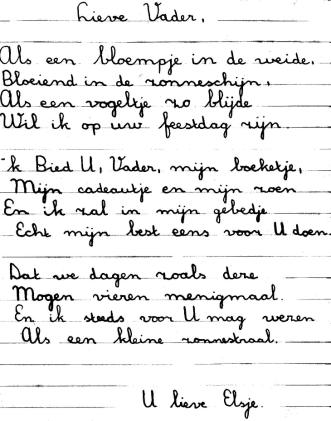 Lieve Vader,
Als een bloempje in de weide.
Bloeiend in de zonneschijn,
Als een vogeltje zo blijde
Wil ik op uw feestdag zijn.
'k Bied U, Vader, mijn boeketje,
Mijn cadeautje en mijn zoen
En ik zal in mijn gebedje
Echt mijn best eens voor U doen.
Dat we dagen zoals deze
Mogen vieren menigmaal.
En ik steeds voor U mag wezen
Als een kleine zonnestraal.
U lieve Elsje.